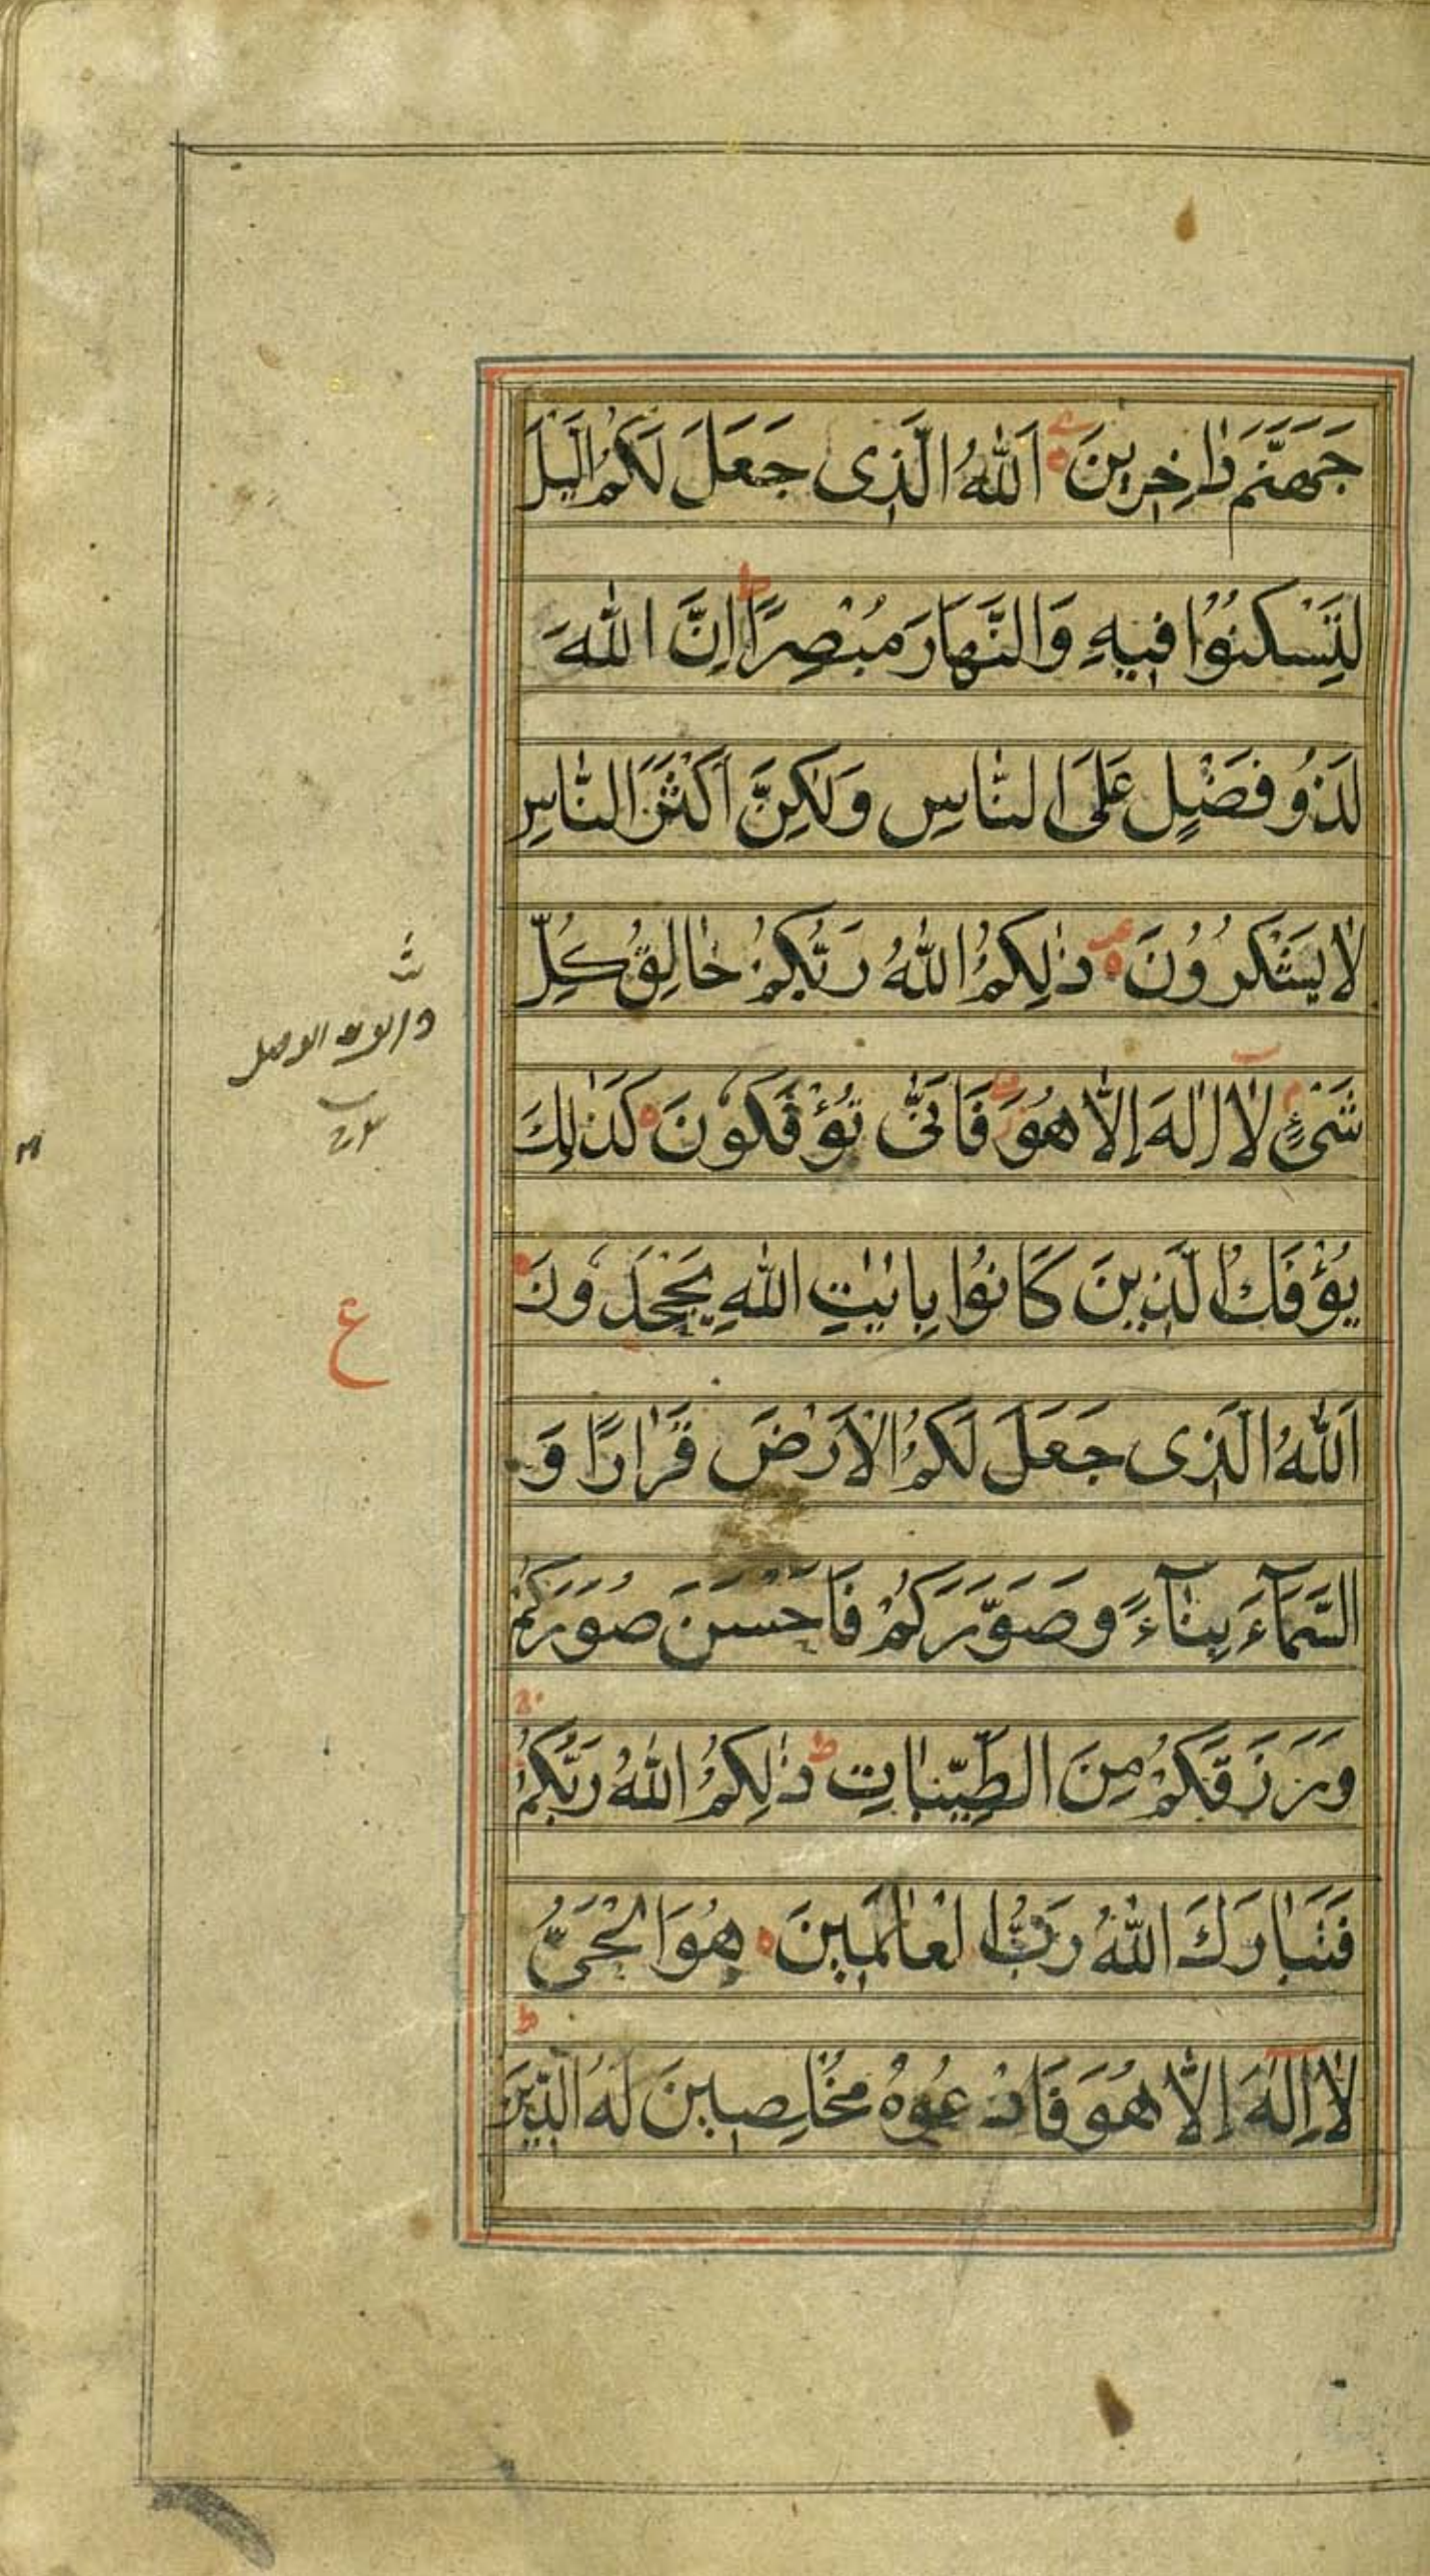 جَهَنَّمَ دٰاخِرِينَ اَللّٰهُ الَّذِى جَعَلَ لَكُمُ الَّيْلَ
لِتَسْكُنُوْا فِيهِ وَالنَّهَارَ مُبْصِرًا ط اِنَّ اللّٰهَ
لَذُو فَضْلٍ عَلَى النَّاسِ وَلٰكِنَّ اَكْثَرَ النَّاسِ
لَا يَشْكُرُوْنَ ذٰلِكُمُ اللّٰهُ رَبُّكُمْ خٰالِقُ كُلِّ
شَىْءٍ لَا اِلٰهَ اِلَّا هُوَ فَاَنّٰى تُؤْفَكُوْنَ كَذٰلِكَ
يُؤْفَكُ الَّذِينَ كَانُوْا بِاٰيٰتِ اللّٰهِ يَجْحَدُونَ
ع
اَللّٰهُ الَّذِى جَعَلَ لَكُمُ الْاَرْضَ قَرٰارًا وَ
السَّمَآءَ بِنٰآءً وَصَوَّرَكُمْ فَاَحْسَنَ صُوَرَكُمْ
وَرَزَقَكُمْ مِنَ الطَّيِّبٰاتِ ط ذٰلِكُمُ اللّٰهُ رَبُّكُمْ
فَتَبٰارَكَ اللّٰهُ رَبُّ الْعٰالَمِينَ هُوَ الْحَىُّ
لَا اِلٰهَ اِلَّا هُوَ فَادْعُوهُ مُخْلِصِينَ لَهُ الدِّينَ ط